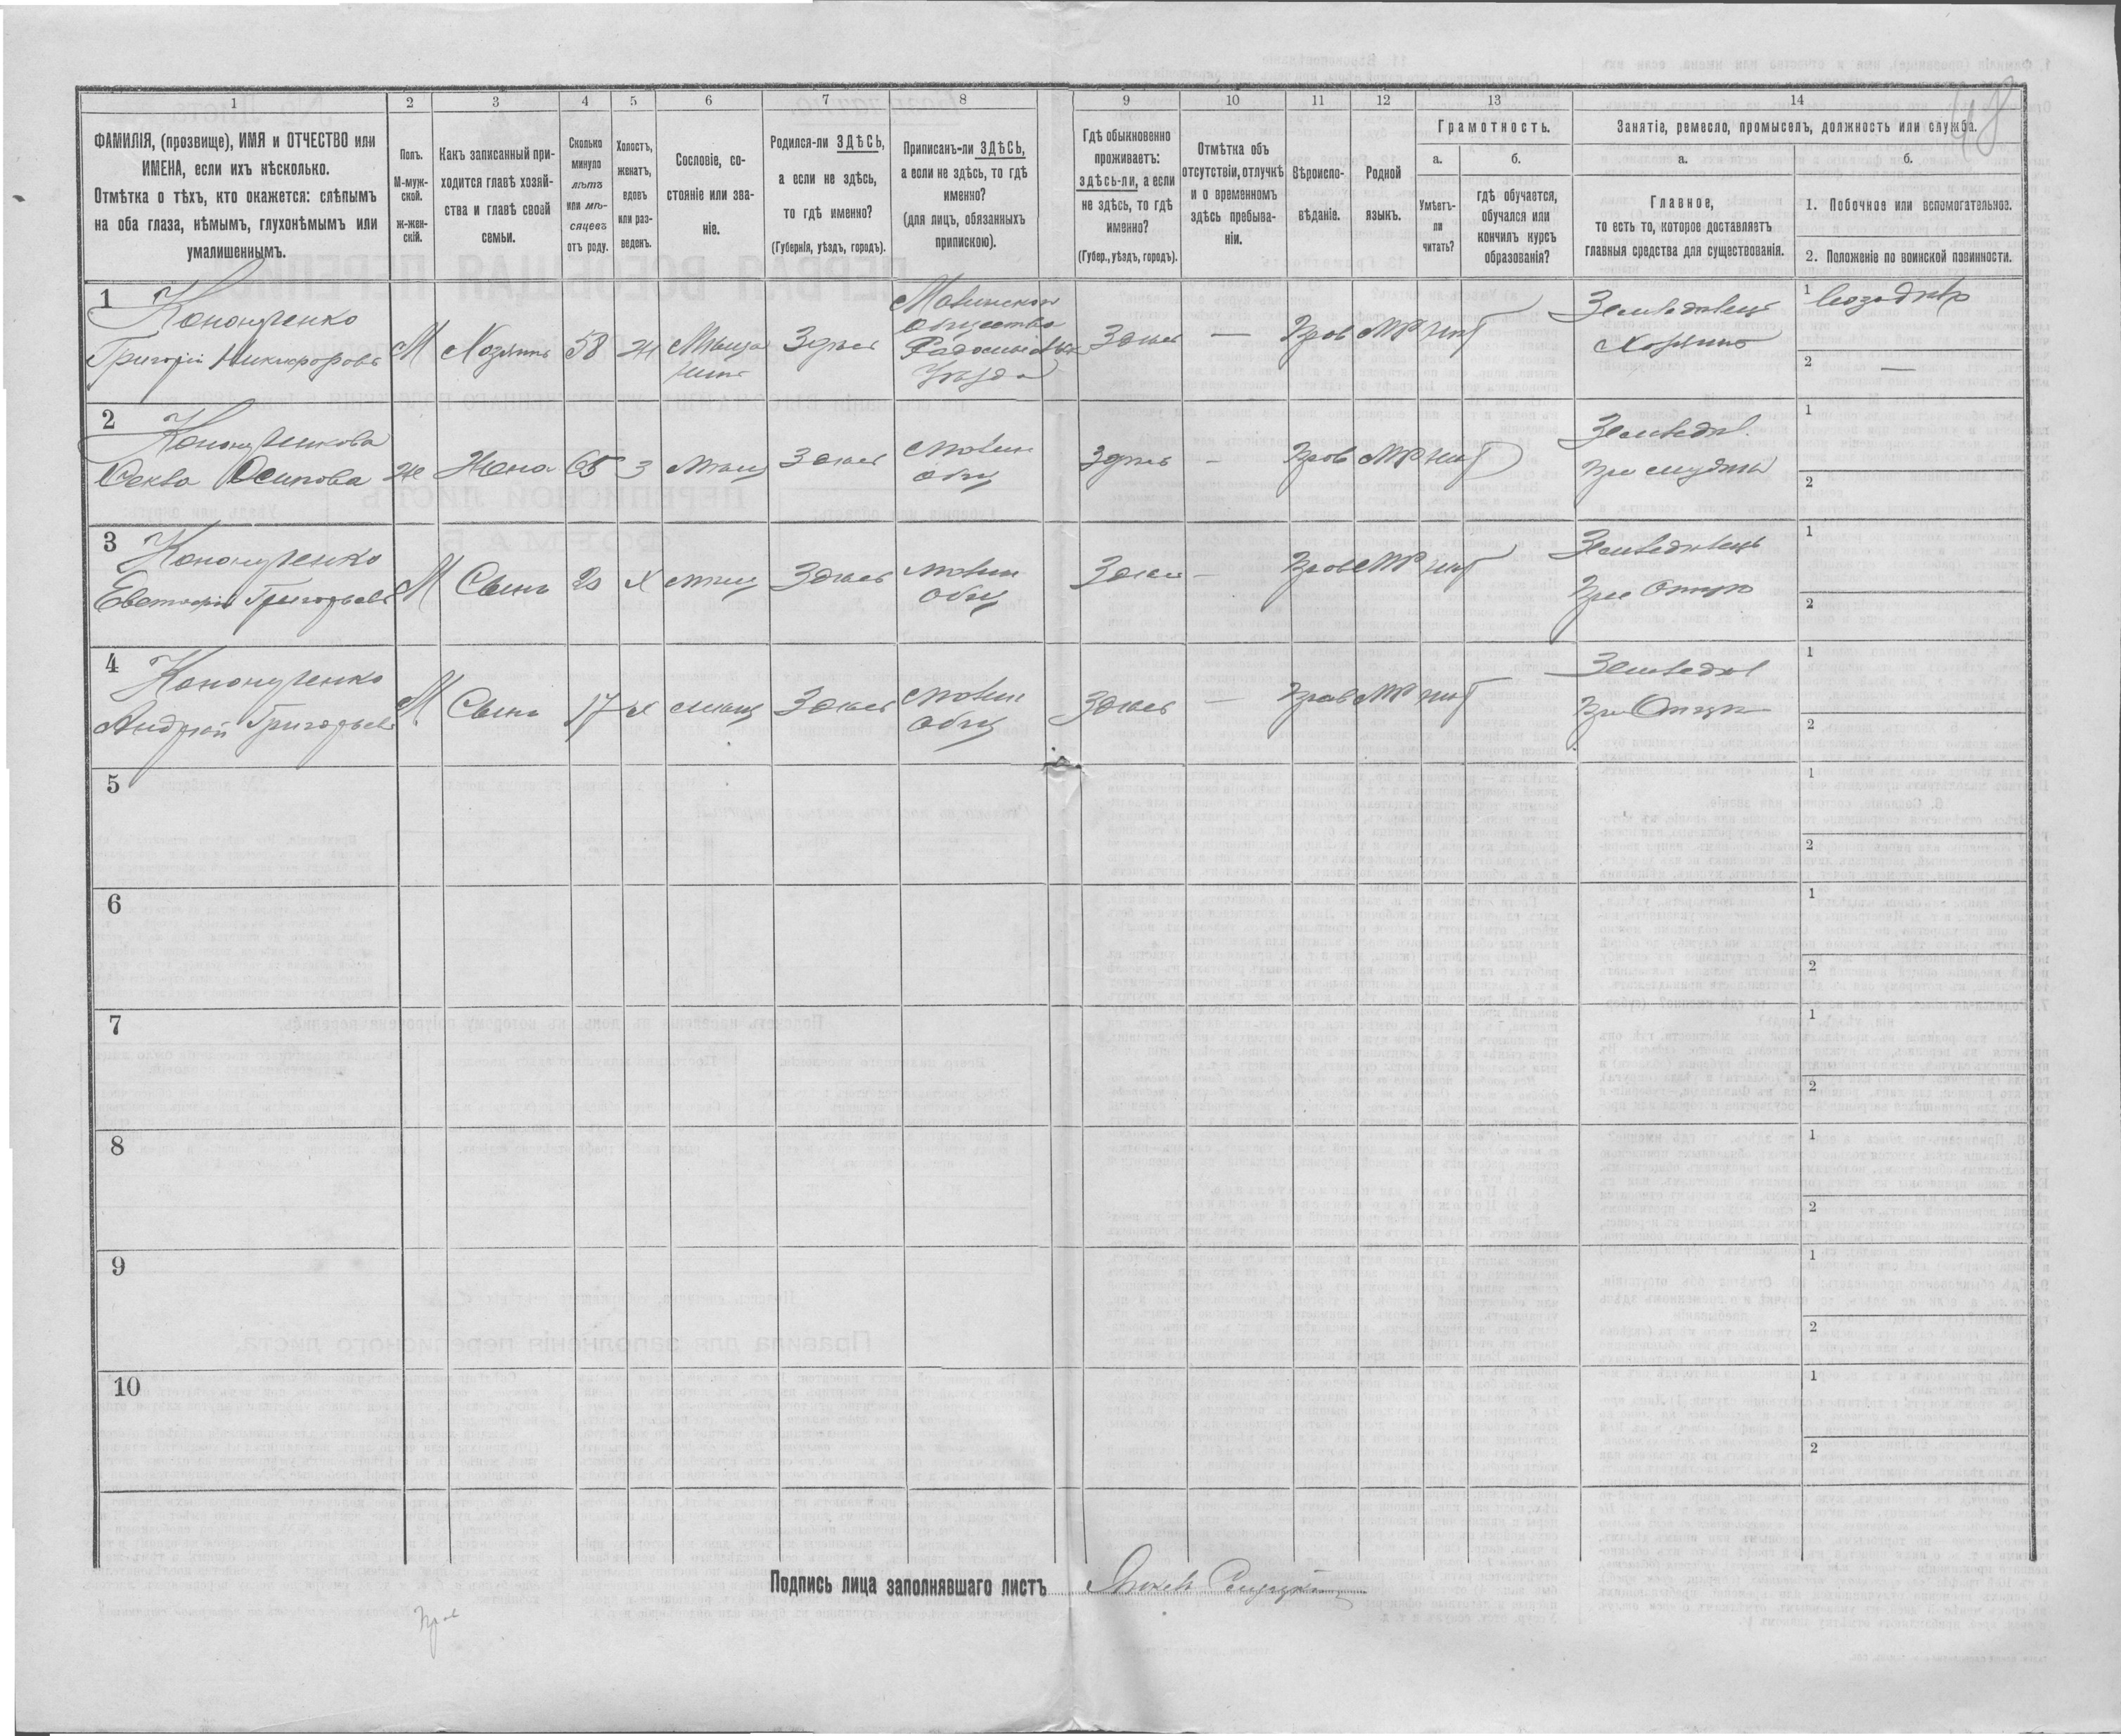 48
1
2
3
4
5
6
7
8
9
10
11
12
13
14
ФАМИЛІЯ, (прозвище), ИМЯ и ОТЧЕСТВО или
ИМЕНА, если ихъ нѣсколько.
Отмѣтка о тѣхъ, кто окажется: слѣпымъ
на оба глаза, нѣмымъ, глухонѣмымъ или
умалишеннымъ.
Полъ.
М-муж-
ской.
ж-жен-
скій.
Какъ записанный при-
ходится главѣ хозяй-
ства и главѣ своей
семьи.
Сколько
минуло
лѣтъ
или мѣ-
сяцевъ
отъ роду.
Холостъ,
женатъ,
вдовъ
или раз-
веденъ.
Сословіе, со-
стояніе или зва-
ніе.
Родился-ли ЗДѢСЬ,
а если не здѣсь,
то гдѣ именно?
(Губернія, уѣздъ, городъ).
Приписанъ-ли ЗДѢСЬ,
а если не здѣсь, то гдѣ
именно?
(для лицъ, обязанныхъ
припискою).
Гдѣ обыкновенно
проживаетъ:
здѣсь-ли, а если
не здѣсь, то гдѣ
именно?
(Губер., уѣздъ, городъ).
Отмѣтка объ
отсутствіи, отлучкѣ
и о временномъ
здѣсь пребыва-
ніи.
Вѣроиспо-
вѣданіе.
Родной
языкъ.
Грамотность.
а.
б.
Умѣетъ-
ли
читать?
гдѣ обучается,
обучался или
кончилъ курсъ
образованія?
Занятіе, ремесло, промыселъ, должность или служба.
а.
б.
Главное,
то есть то, которое доставляетъ
главныя средства для существованія.
1. Побочное или вспомогательное.
2. Положеніе по воинской повинности.
1
Кононученко
Григорій Никифоровъ
М
Хозяинъ
58
Ж
Мѣща
нинъ
Здѣсь
Общества
Радомысльск
Уѣзда
Здѣсь
—
Прав
МР
нѣт
Земледѣлецъ
Хозяинъ
1
2
—
2
Кононученкова
Осипова
Ж
Жена
65
З
мѣщ
Здѣсь
общ
Здѣсь
-
Прав
МР
нѣт
Земледѣл.
При мужѣ
1
2
3
Кононученко
Григорьевъ
М
Сынъ
20
Х
мѣщ
Здѣсь
общ
Здѣсь
-
Прав
МР
нѣт
Земледѣлецъ
При Отцѣ
1
2
4
Кононученко
Андрей Григорьевъ
М
Сынъ
17
Х
мѣщ
Здѣсь
общ
Здѣсь
—
Прав
МР
нѣт
Земледѣл
При Отцѣ
1
2
5
1
2
6
1
2
7
1
2
8
1
2
9
1
2
10
1
2
Подпись лица заполнявшаго листъ